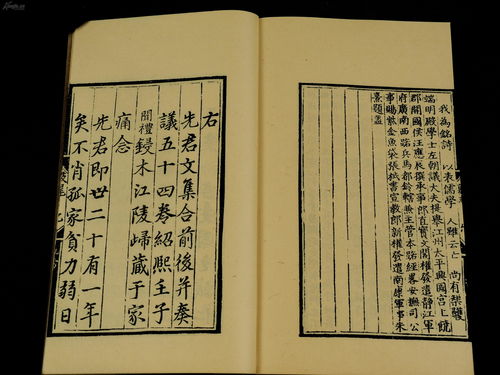 我為銘詩 以表儒學 人雖云亡 尚有榘
端明殿學士左朝議大夫提舉江州太平興國宮上饒
郡開國侯汪應辰撰承事郎直寶文閣權發遣靜江軍
府廣南西路兵馬都鈐轄兼主管本路經畧安撫司公
事賜紫金魚袋張栻書宣教郎新權發遣南康軍事朱
熹題蓋
右
先君文集合前後并奏
議五十四卷紹熙壬子
開禮鋟木江陵歸藏于家
痛念
先君即世二十有一年
矣不肖孤家貧力弱日